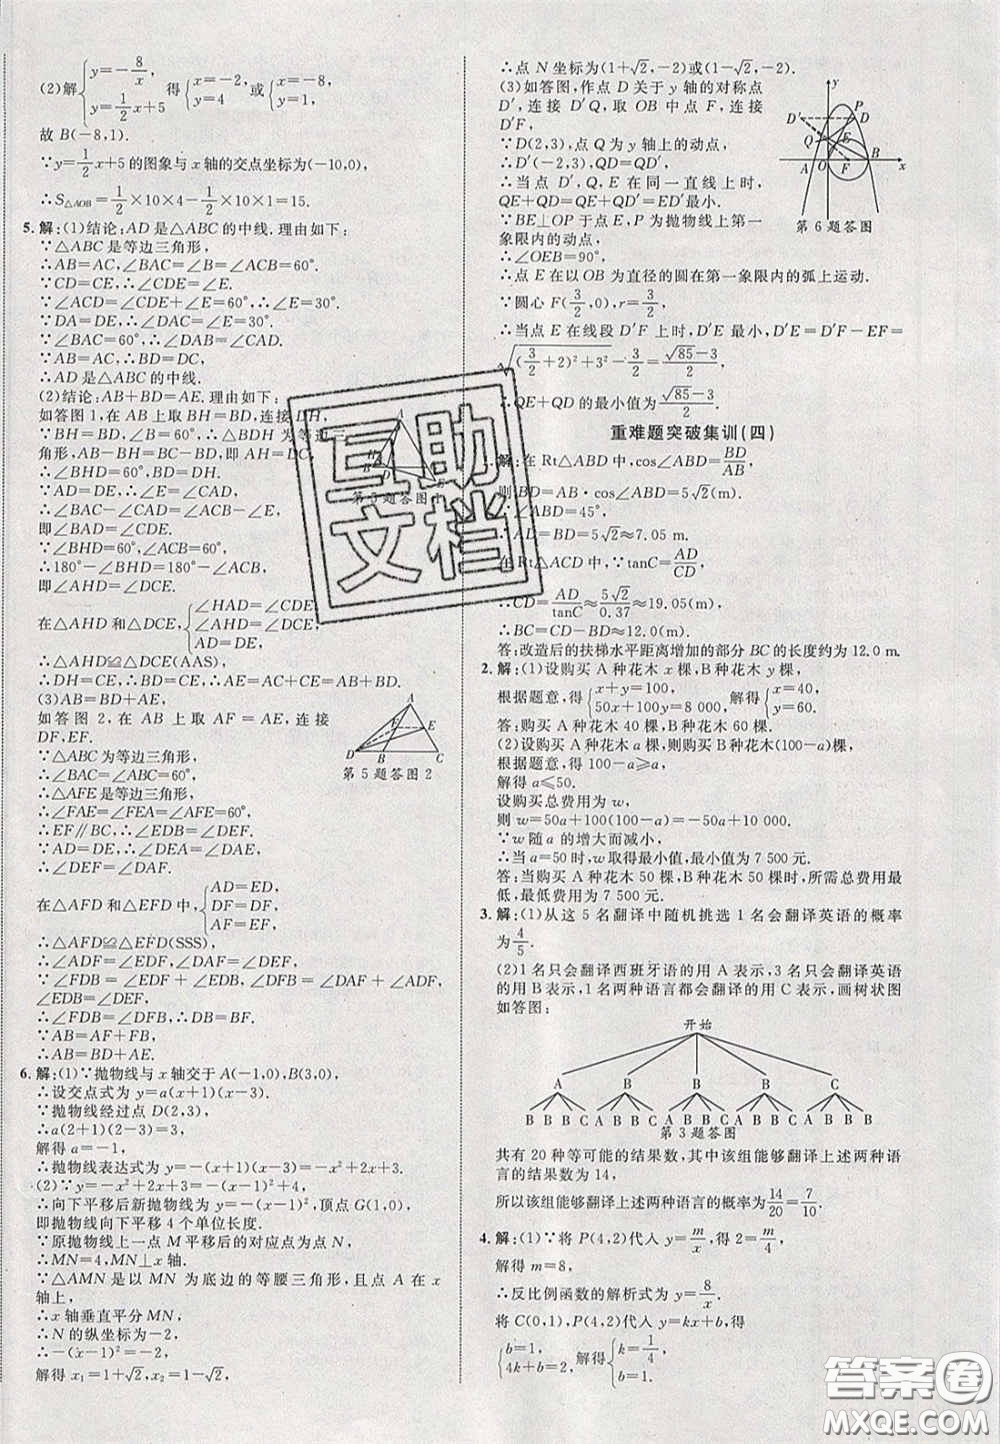 (2)解{y=-8/x, y=1/2x+5 得{x=-2, y=4 或{x=-8, y=1.
故 B(-8,1).
∵y=1/2x+5的图象与x轴的交点坐标为(-10,0),
∴S△AOB=1/2×10×4-1/2×10×1=15.
5.解:(1)结论:AD是△ABC的中线.理由如下:
∵△ABC是等边三角形,
∴AB=AC,∠BAC=∠B=∠ACB=60°.
∵CD=CE,∴∠CDE=∠E.
∵∠ACD=∠CDE+∠E=60°,∴∠E=30°.
∵DA=DE,∴∠DAC=∠E=30°.
∵∠BAC=60°,∴∠DAB=∠CAD.
∵AB=AC,∴BD=DC,
∴AD是△ABC的中线.
(2)结论:AB+BD=AE.理由如下:
如答图1,在AB上取BH=BD,连接DH,
∵BH=BD,∠B=60°,∴△BDH为等边三
角形,AB-BH=BC-BD,
∴∠BHD=60°,BD=DH,AH=DC.
第5题答图1
∵AD=DE,∴∠E=∠CAD,
∴∠BAC-∠CAD=∠ACB-∠E,
即∠BAD=∠CDE.
∵∠BHD=60°,∠ACB=60°,
∴180°-∠BHD=180°-∠ACB,
即∠AHD=∠DCE.
在△AHD和△DCE,{∠HAD=∠CDE, ∠AHD=∠DCE, AD=DE,
∴△AHD≌△DCE(AAS),
∴DH=CE,∴BD=CE,∴AE=AC+CE=AB+BD.
(3)AB=BD+AE,
如答图2,在AB上取AF=AE,连接
DF,EF.
∵△ABC为等边三角形,
∴∠BAC=∠ABC=60°,
∴△AFE是等边三角形,
∴∠FAE=∠FEA=∠AFE=60°,
∴EF∥BC,∴∠EDB=∠DEF.
∵AD=DE,∴∠DEA=∠DAE,
∴∠DEF=∠DAF.
第5题答图2
在△AFD和△EFD中,{AD=ED, DF=DF, AF=EF,
∴△AFD≌△EFD(SSS),
∴∠ADF=∠EDF,∠DAF=∠DEF,
∵∠FDB=∠EDF+∠EDB,∠DFB=∠DAF+∠ADF,
∠EDB=∠DEF,
∴∠FDB=∠DFB,∴DB=BF.
∵AB=AF+FB,
∴AB=BD+AE.
6.解:(1)∵抛物线与x轴交于A(-1,0),B(3,0),
∴设交点式为y=a(x+1)(x-3).
∵抛物线经过点D(2,3),
∴a(2+1)(2-3)=3,
解得a=-1,
∴抛物线表达式为y=-(x+1)(x-3)=-x²+2x+3.
(2)∵y=-x²+2x+3=-(x-1)²+4,
∴向下平移后新抛物线为y=-(x-1)²,顶点G(1,0),
即抛物线向下平移4个单位长度.
∵原抛物线上一点M平移后的对应点为N,
∴MN=4,MN⊥x轴.
∵△AMN是以MN为底边的等腰三角形,且点A在x
轴上,
∴x轴垂直平分MN,
∴N的纵坐标为-2,
∴-(x-1)²=-2,
解得x₁=1+√2,x₂=1-√2,
∴点N坐标为(1+√2,-2)或(1-√2,-2).
(3)如答图,作点D关于y轴的对称点
D′,连接D′Q,取OB中点F,连接
D′F.
∵D(2,3),点Q为y轴上的动点,
∴D′(-2,3),QD=QD′.
∴当点D′,Q,E在同一直线上时,
QE+QD=QE+QD′=D′E最小.
∵BE⊥OP于点E,P为抛物线上第一
象限内的动点,
第6题答图
∴∠OEB=90°,
∴点E在以OB为直径的圆在第一象限内的弧上运动.
∵圆心F(3/2,0),r=3/2,
∴当点E在线段D′F上时,D′E最小,D′E=D′F-EF=
√((3/2+2)²+3²)-3/2=(√85-3)/2,
∴QE+QD的最小值为(√85-3)/2.
重难题突破集训(四)
1.解:在Rt△ABD中,cos∠ABD=BD/AB,
则BD=AB·cos∠ABD=5√2(m).
∵∠ABD=45°,
∴AD=BD=5√2≈7.05 m.
在Rt△ACD中,∵tanC=AD/CD,
∴CD=AD/tanC≈5√2/0.37≈19.05(m),
∴BC=CD-BD≈12.0(m).
答:改造后的扶梯水平距离增加的部分BC的长度约为12.0 m.
2.解:(1)设购买A种花木x棵,B种花木y棵,
根据题意,得{x+y=100, 50x+100y=8 000, 解得{x=40, y=60.
答:购买A种花木40棵,B种花木60棵.
(2)设购买A种花木a棵,则购买B种花木(100-a)棵,
根据题意,得100-a≥a,
解得a≤50.
设购买总费用为w,
则w=50a+100(100-a)=-50a+10 000.
∵w随a的增大而减小,
∴当a=50时,w取得最小值,最小值为7 500元.
答:当购买A种花木50棵,B种花木50棵时,所需总费用最
低,最低费用为7 500元.
3.解:(1)从这5名翻译中随机挑选1名会翻译英语的概率
为4/5.
(2)1名只会翻译西班牙语的用A表示,3名只会翻译英语
的用B表示,1名两种语言都会翻译的用C表示,画树状图
如答图:
开始
A B B B C
B B B C A B B C A B B C A B B C A B B B
第3题答图
共有20种等可能的结果数,其中该组能够翻译上述两种语
言的结果数为14,
所以该组能够翻译上述两种语言的概率为14/20=7/10.
4.解:(1)∵将P(4,2)代入y=m/x,得2=m/4,
解得m=8,
∴反比例函数的解析式为y=8/x.
将C(0,1),P(4,2)代入y=kx+b,得
{b=1, 4k+b=2, 解得{k=1/4, b=1.
互助
文档
答案圈
MXQE.COM